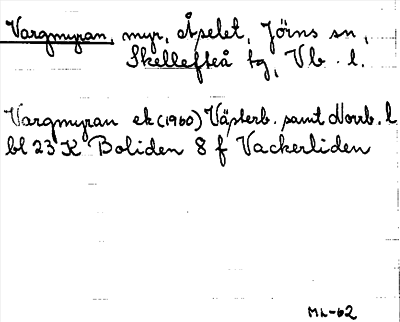 Vargmyran, myr, Åselet, Jörns sn,
Skellefteå tg, Vb. l.
Vargmyran ek (1960) Västerb. samt Norrb. l
bl 23 K Boliden 8 f Vackerliden
ML-62